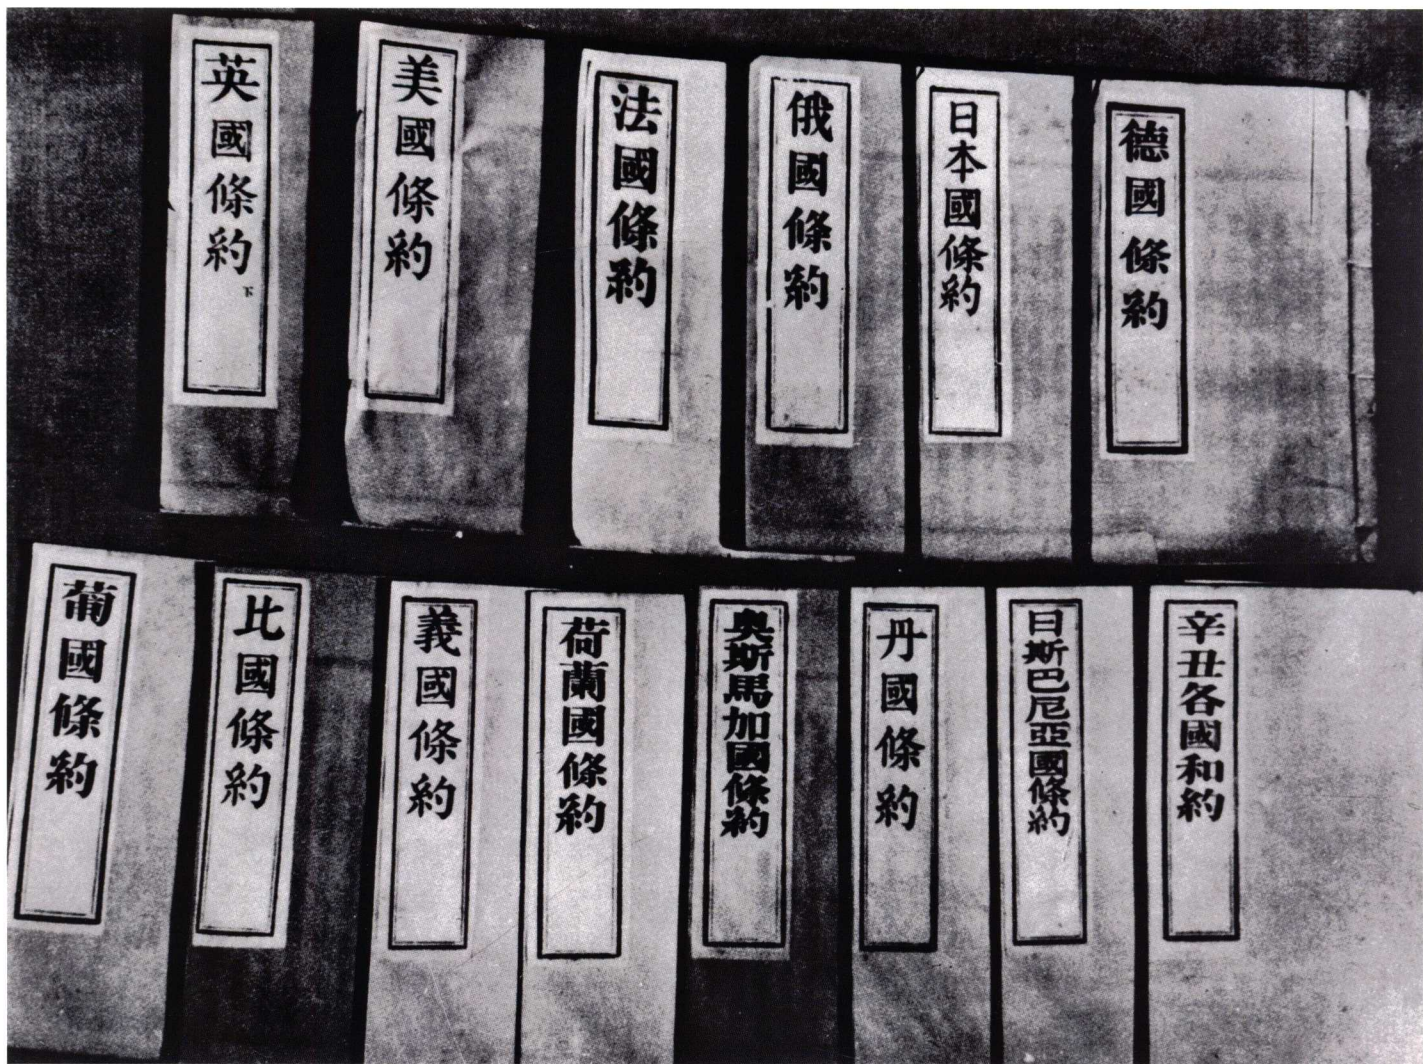 英國條約
下
美國條約
法國條約
俄國條約
日本國條約
德國條約
葡國條約
比國條約
義國條約
荷蘭國條約
奥斯馬加國條約
丹國條約
日斯巴尼亞國條約
辛丑各國和約